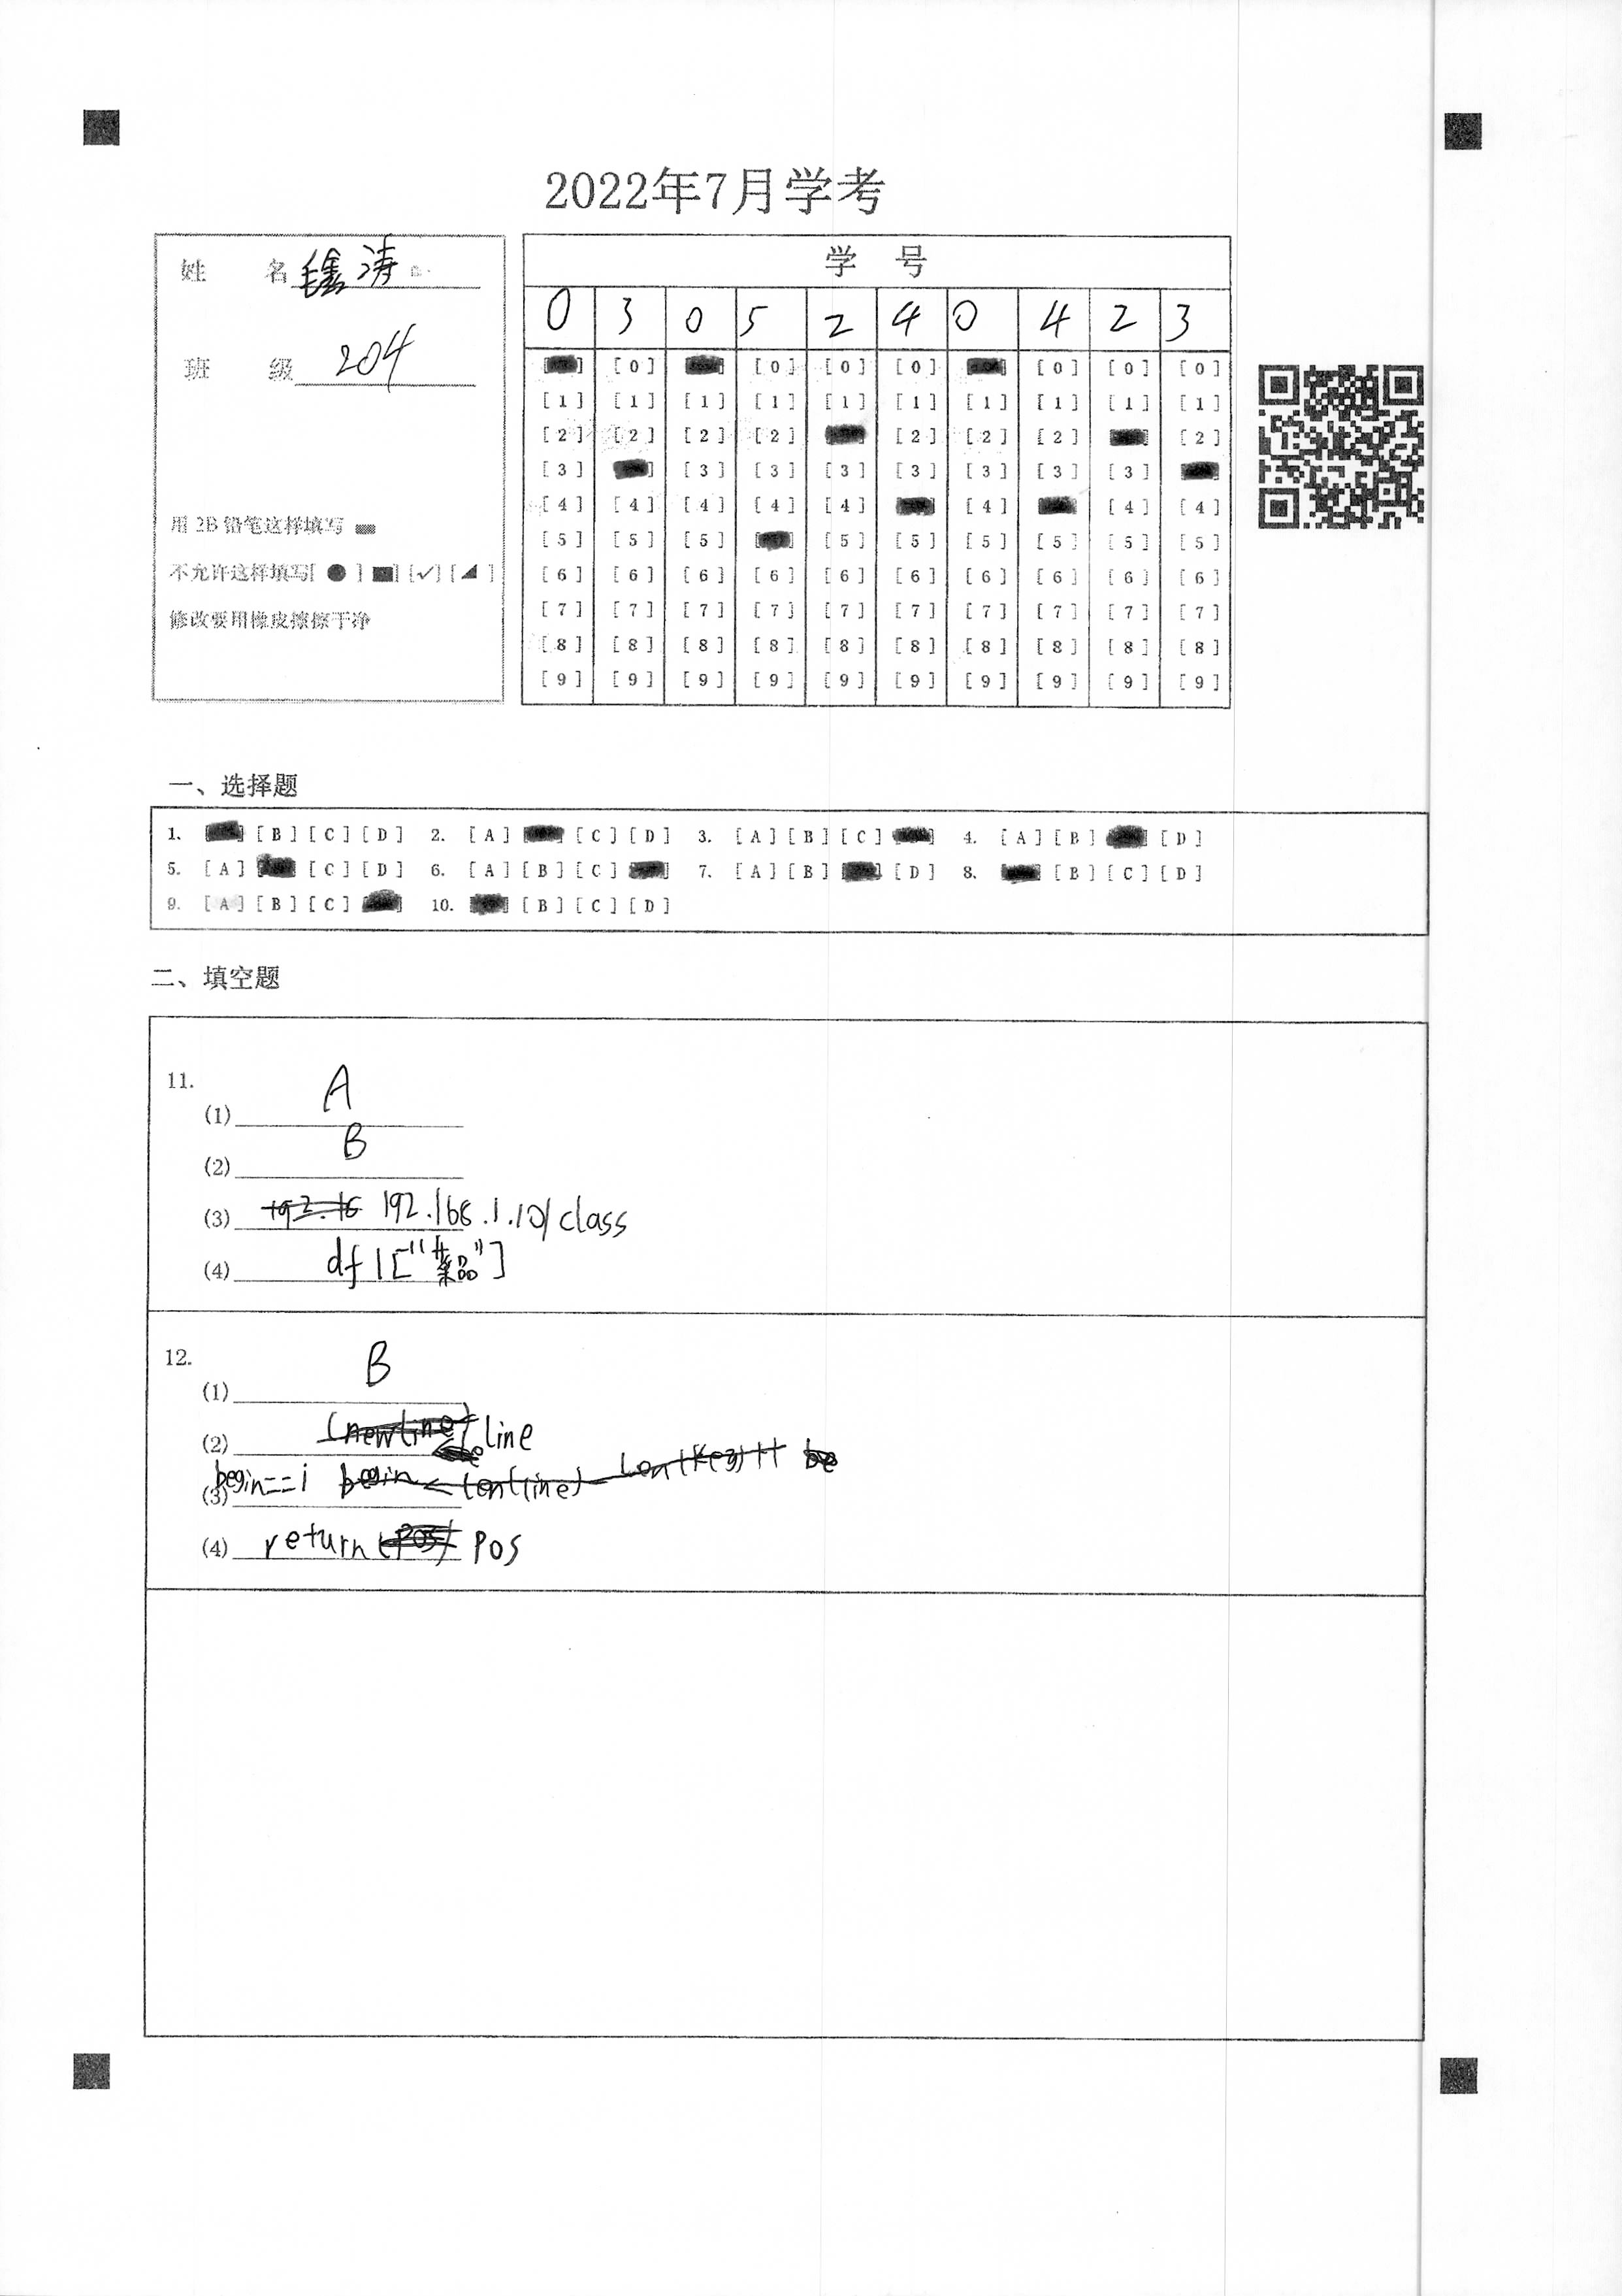 2022年7月学考
姓 名 毛鑫涛
班 级 204
用 2B 铅笔这样填写
不允许这样填写[ ● ] ■] [✓] [◢ ]
修改要用橡皮擦擦干净
学 号
0 3 0 5 2 4 0 4 2 3
[0] [0] [0] [0] [0] [0] [0]
[1] [1] [1] [1] [1] [1] [1] [1] [1] [1]
[2] [2] [2] [2] [2] [2] [2] [2]
[3] [3] [3] [3] [3] [3] [3] [3]
[4] [4] [4] [4] [4] [4] [4] [4]
[5] [5] [5] [5] [5] [5] [5] [5] [5]
[6] [6] [6] [6] [6] [6] [6] [6] [6] [6]
[7] [7] [7] [7] [7] [7] [7] [7] [7] [7]
[8] [8] [8] [8] [8] [8] [8] [8] [8] [8]
[9] [9] [9] [9] [9] [9] [9] [9] [9] [9]
一、选择题
1. [B] [C] [D] 2. [A] [C] [D] 3. [A] [B] [C] 4. [A] [B] [D]
5. [A] [C] [D] 6. [A] [B] [C] 7. [A] [B] [D] 8. [B] [C] [D]
9. [A] [B] [C] 10. [B] [C] [D]
二、填空题
11.
(1) A
(2) B
(3) 192.16 192.168.1.10/class
(4) df1["菜品"]
12.
(1) B
(2) (newline) line
(3) begin==i begin <len(line)-len(key)+1 be
(4) return (pos) pos